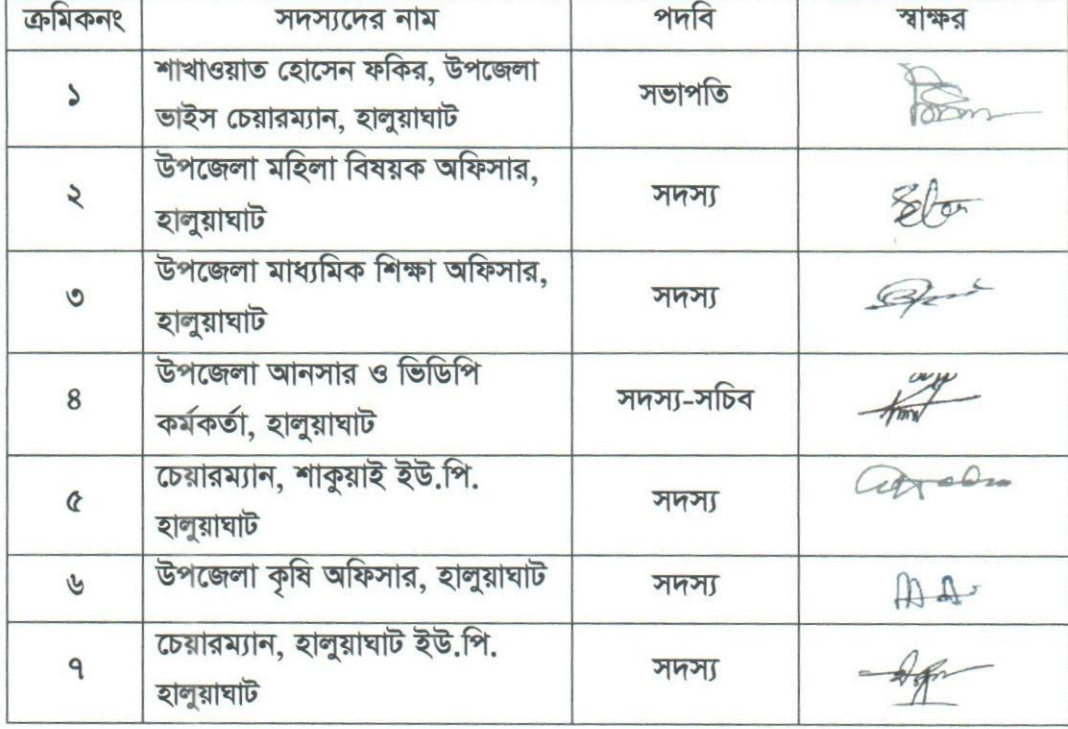 ক্রমিকনং সদস্যদের নাম পদবি স্বাক্ষর
১ শাখাওয়াত হোসেন ফকির, উপজেলা
ভাইস চেয়ারম্যান, হালুয়াঘাট সভাপতি
২ উপজেলা মহিলা বিষয়ক অফিসার,
হালুয়াঘাট সদস্য
৩ উপজেলা মাধ্যমিক শিক্ষা অফিসার,
হালুয়াঘাট সদস্য
৪ উপজেলা আনসার ও ভিডিপি
কর্মকর্তা, হালুয়াঘাট সদস্য-সচিব
৫ চেয়ারম্যান, শাকুয়াই ইউ.পি.
হালুয়াঘাট সদস্য
৬ উপজেলা কৃষি অফিসার, হালুয়াঘাট সদস্য
৭ চেয়ারম্যান, হালুয়াঘাট ইউ.পি.
হালুয়াঘাট সদস্য